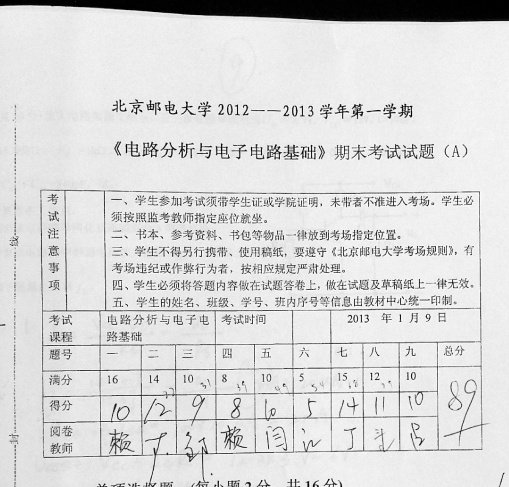 北京邮电大学 2012——2013 学年第一学期
《电路分析与电子电路基础》期末考试试题（A）
考试注意事项
一、学生参加考试须带学生证或学院证明，未带者不准进入考场。学生必
须按照监考教师指定座位就坐。
二、书本、参考资料、书包等物品一律放到考场指定位置。
三、学生不得另行携带、使用稿纸，要遵守《北京邮电大学考场规则》，有
考场违纪或作弊行为者，按相应规定严肃处理。
四、学生必须将答题内容做在试题答卷上，做在试题及草稿纸上一律无效。
五、学生的姓名、班级、学号、班内序号等信息由教材中心统一印制。
考试课程 电路分析与电子电路基础 考试时间 2013 年 1 月 9 日
题号 一 二 三 四 五 六 七 八 九 总分
满分 16 14 10 8 10 5 15 12 10
得分 10 12 9 8 10 5 14 11 10 89
阅卷教师 赖 丁 邹 赖 闫 江 丁
单项选择题 (每小题 2 分，共 16 分)